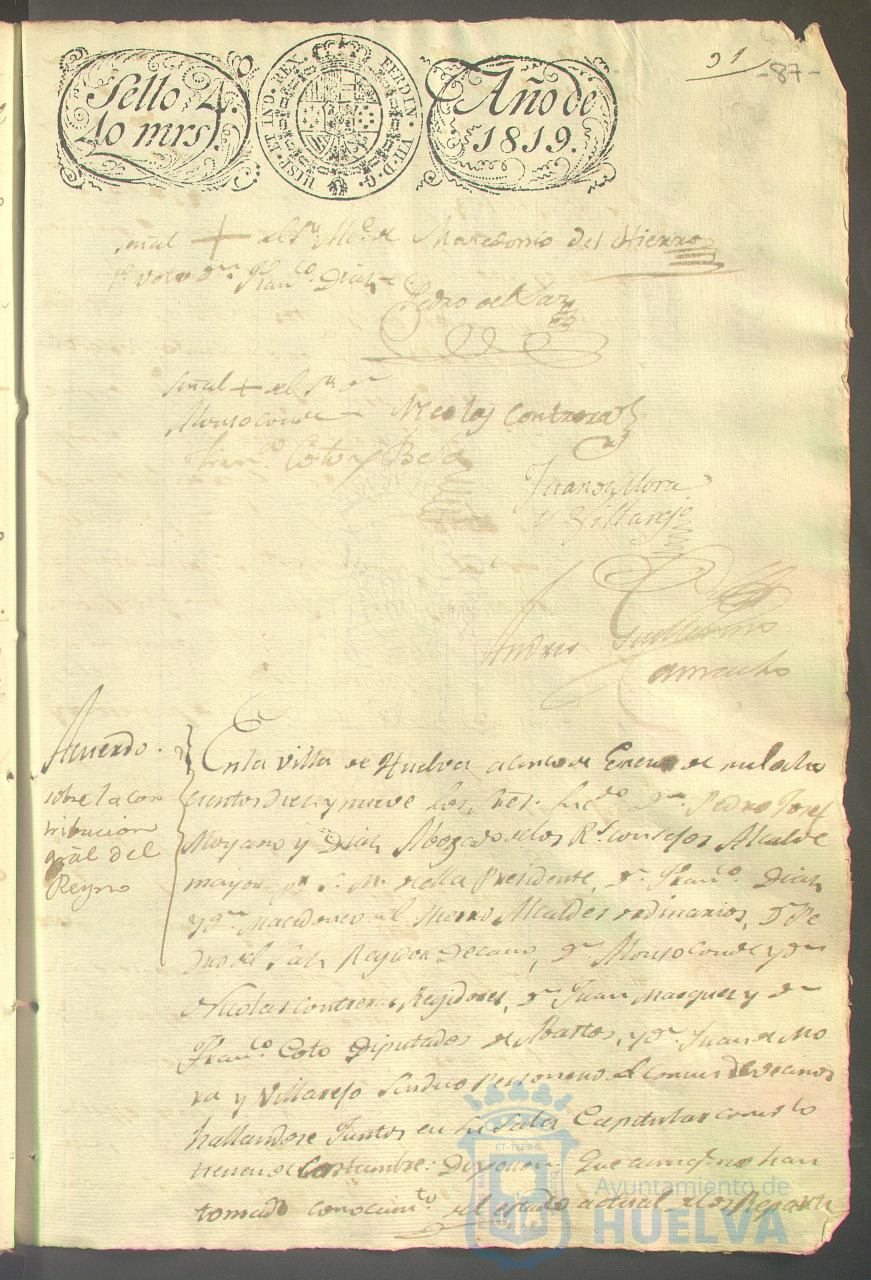 91
-87-
Sello 4.
40 mrs.
HISP. ET IND. REX. FERDIN. VII. D. G.
Año de
1819.
señal + del Sr. Alce. de Macedonio del Hierro
1º voto Dn. Franco. Diaz
Pedro del Saz
señal + del Sr. Dn
Alonso Conde Nicolas Contreras
Franco. Coto y Beda
Juan de Mora
y Villarejo
Andres Guillermo
Camacho
Acuerdo.
sobre la con
tribucion
gral del
Reyno
En la villa de Huelva a cinco de Enero de mil ocho
cientos diez y nueve los Sres. Licdo. Dn. Pedro Josef
Moyano y Diaz Abogado de los Rs. Consejos Alcalde
mayor pr. S. M. de ella Presidente, Dn. Franco. Diaz
y Dn. Macedonio el Hierro Alcaldes ordinarios, Dn Pe
dro el Saz Regidor Decano, Dn. Alonso Conde y Dn
Nicolas Contreras Regidores, Dn. Juan Marquez y Dn
Franco. Coto Diputados de Abastos, y Dn. Juan de Mo
ra y Villarejo Sindico Personero el comun de vecinos
hallandose Juntos en su Sala Capitular como lo
tienen de Costumbre: Dixeron: Que aunq. no han
tomado conocimto. del estado actual de los Reparti
ET TERRÆ
Ayuntamiento de
HUELVA